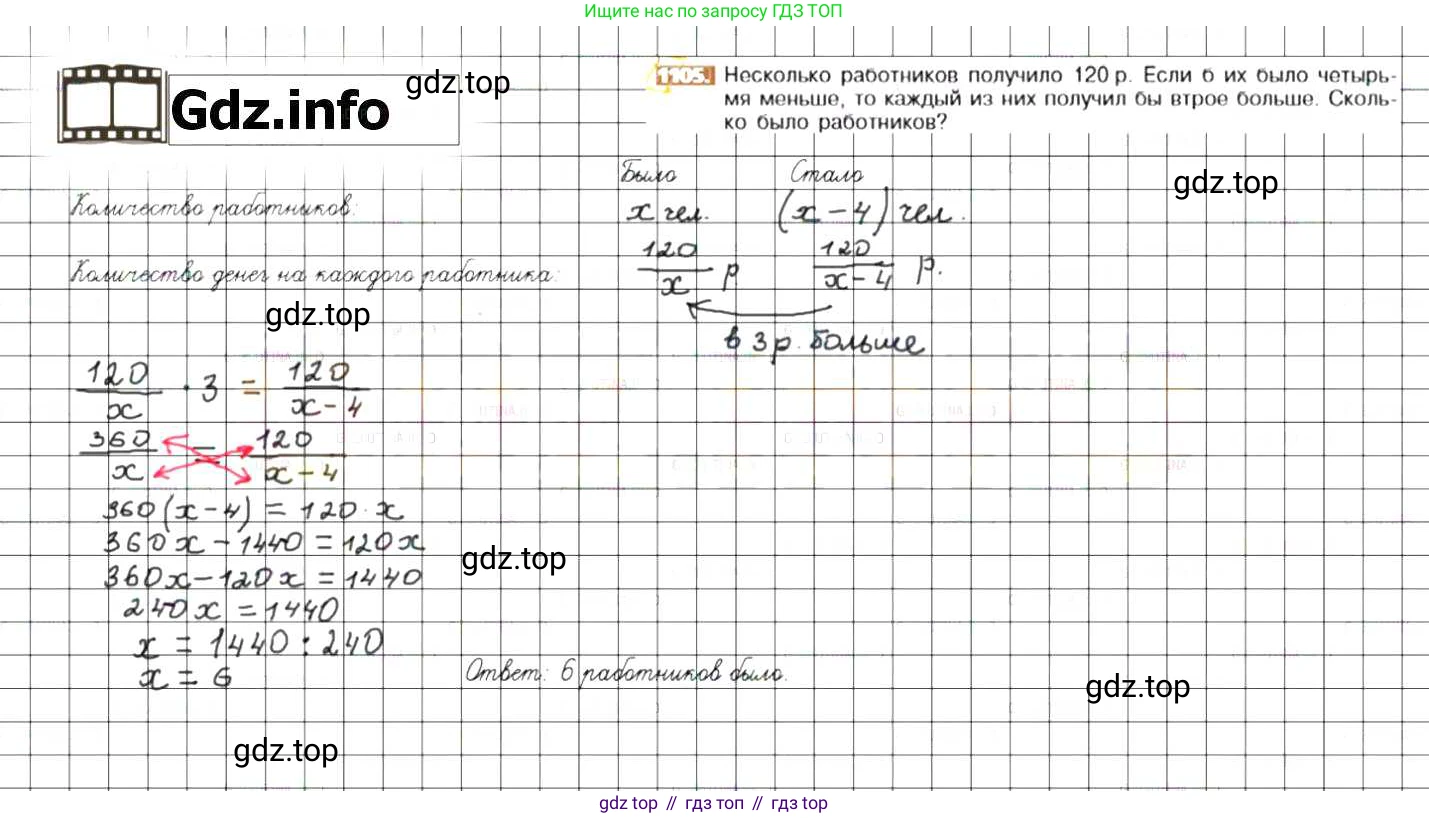 Ищите нас по запросу ГДЗ ТОП
gdz.top
Gdz.info
1105. Несколько работников получило 120 р. Если б их было четырь-
мя меньше, то каждый из них получил бы втрое больше. Сколь-
ко было работников?
Было Стало
gdz.top
Количество работников: x чел. (x - 4) чел.
Количество денег на каждого работника: 120/x р 120/(x - 4) р.
gdz.top
в 3 р. больше
120/x · 3 = 120/(x - 4)
360/x = 120/(x - 4)
360(x - 4) = 120 · x
360x - 1440 = 120x
gdz.top
360x - 120x = 1440
240x = 1440
x = 1440 : 240
x = 6
Ответ: 6 работников было.
gdz.top
gdz.top
gdz top // гдз топ // gdz top